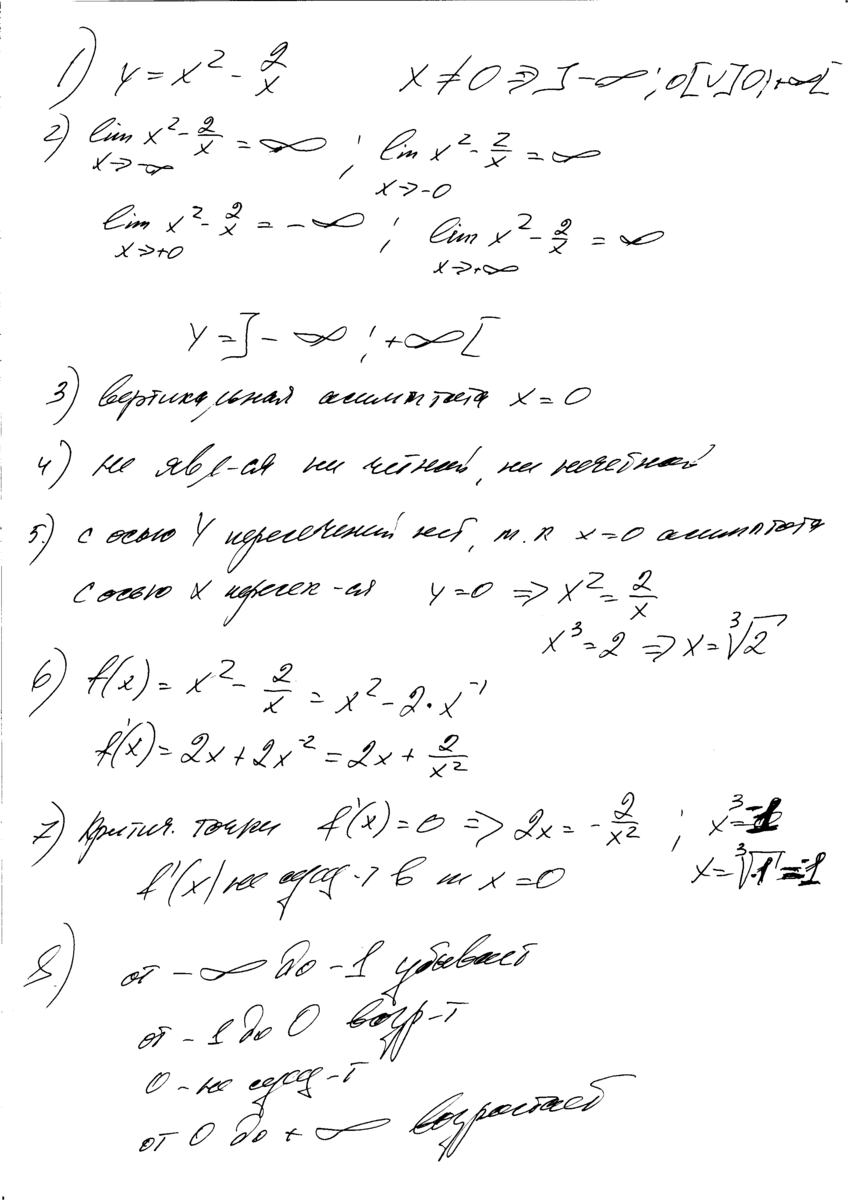 1) y = x² - 2/x x ≠ 0 ⇒ ]-∞; 0[∪]0; +∞[
2) lim x→-∞ x² - 2/x = ∞ ; lim x→-0 x² - 2/x = ∞
lim x→+0 x² - 2/x = -∞ ; lim x→+∞ x² - 2/x = ∞
y = ]-∞; +∞[
3) вертикальная асимптота x = 0
4) не явл-ся ни чётной, ни нечётной
5.) с осью y пересечений нет, т.к x=0 асимптота
с осью x пересек-ся y=0 ⇒ x² = 2/x
x³ = 2 ⇒ x = ∛2
6) f(x) = x² - 2/x = x² - 2·x⁻¹
f'(x) = 2x + 2x⁻² = 2x + 2/x²
7) Критич. точки f'(x) = 0 ⇒ 2x = - 2/x² ; x³ = -1
f'(x) не сущ-т в т x = 0 x = ∛-1 = -1
8) от -∞ до -1 убывает
от -1 до 0 возр-т
0 - не сущ-т
от 0 до +∞ возрастает